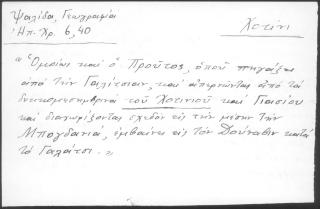 Ψαλίδα, Γεωγραφία
Ἠπ. Χρ. 6, 40
Χοτίνι
"Ὁμοίως καὶ ὁ Προῦτος, ὁποῦ πηγάζει
ἀπὸ τὴν Γαλίτσιαν, καὶ ἀπερνώντας ἀπὸ τὰ
δυτικομεσημβρινὰ τοῦ Χοτινιοῦ καὶ Γιασίου
καὶ διαχωρίζοντας σχεδὸν εἰς τὴν μέσην τὴν
Μπογδανιά, ἐμβαίνει εἰς τὸν Δούναβιν κατὰ
τὸ Γαλάτσι."